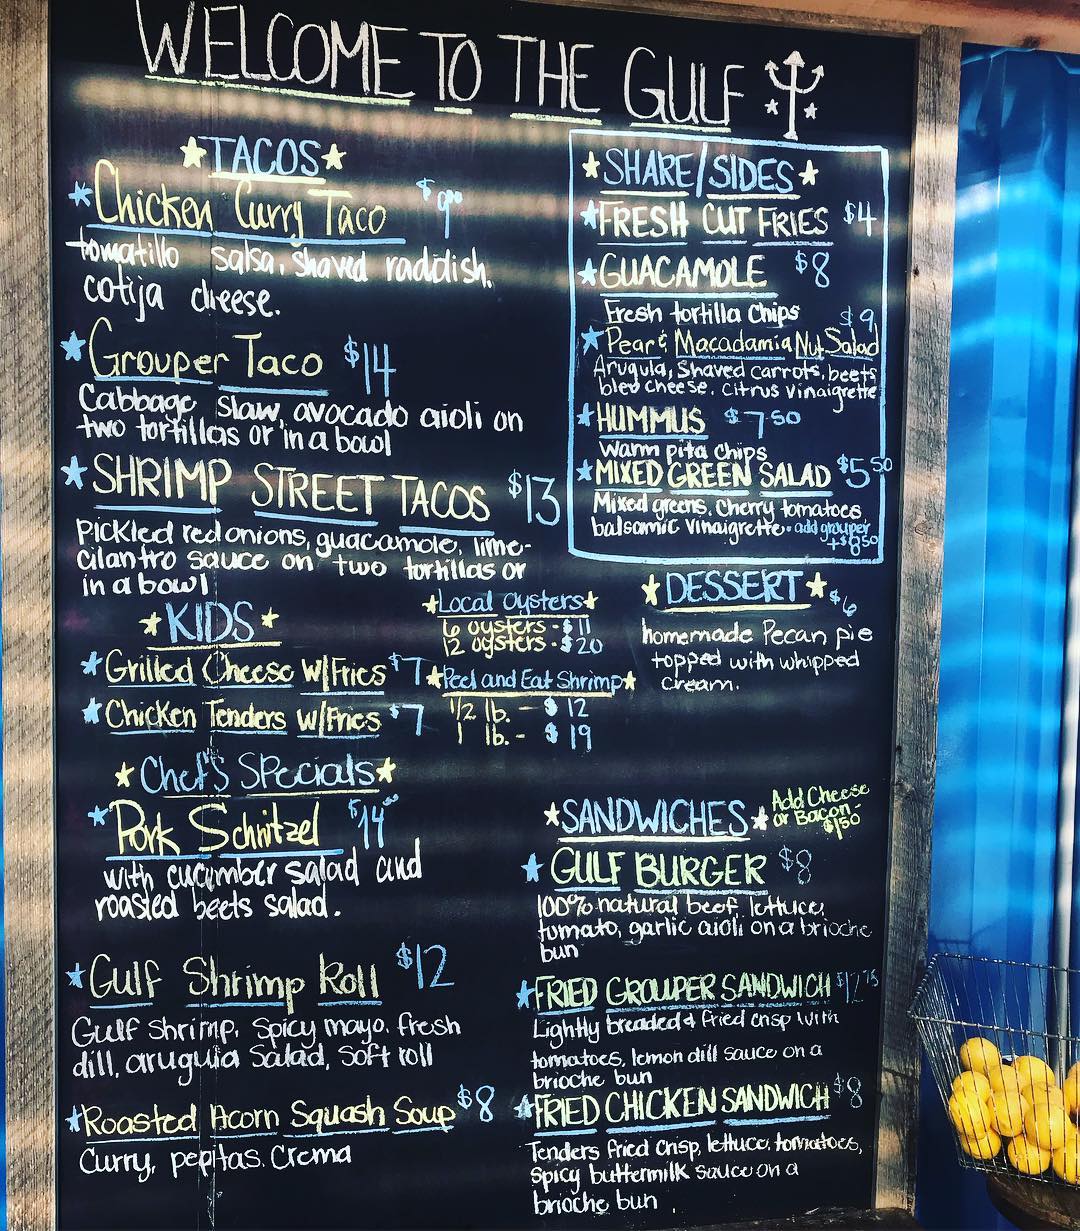 WELCOME TO THE GULF
TACOS
Chicken Curry Taco $9.00
tomatillo salsa, shaved raddish,
cotija cheese.
Grouper Taco $14
Cabbage slaw, avocado aioli on
two tortillas or in a bowl
SHRIMP STREET TACOS $13
Pickled red onions, guacamole, lime-
cilantro sauce on two tortillas or
in a bowl
KIDS
Grilled Cheese W/Fries $7
Chicken Tenders W/Fries $7
Local Oysters
6 oysters - $11
12 oysters - $20
Peel and Eat Shrimp
1/2 lb. - $12
1 lb. - $19
Chef's Specials
Pork Schnitzel $14.00
with cucumber salad and
roasted beets salad.
Gulf Shrimp Roll $12
Gulf shrimp, Spicy mayo, fresh
dill, arugula salad, soft roll
Roasted Acorn Squash Soup $8
Curry, pepitas, Crema
SHARE/SIDES
FRESH CUT FRIES $4
GUACAMOLE $8
Fresh tortilla chips
Pear & Macadamia Nut Salad $9
Arugula, Shaved carrots, beets
bleu cheese, citrus vinaigrette
HUMMUS $7.50
Warm pita chips
MIXED GREEN SALAD $5.50
Mixed greens, Cherry tomatoes,
balsamic vinaigrette - add grouper
+$8.50
DESSERT $6
homemade Pecan pie
topped with whipped
cream.
SANDWICHES
Add Cheese
or Bacon -
$1.50
GULF BURGER $8
100% natural beef, lettuce,
tomato, garlic aioli on a brioche
bun
FRIED GROUPER SANDWICH $12.75
Lightly breaded & fried crisp with
tomatoes, lemon dill sauce on a
brioche bun
FRIED CHICKEN SANDWICH $8
Tenders fried crisp, lettuce, tomatoes,
Spicy buttermilk sauce on a
brioche bun